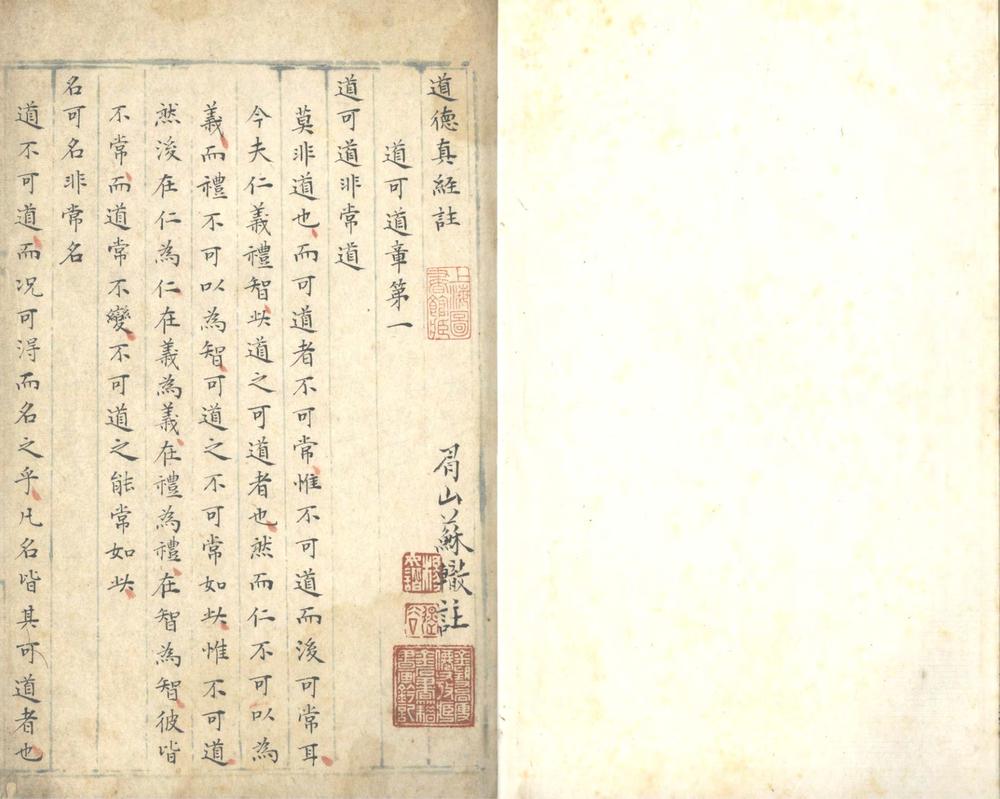 道德真經註
上海圖書館藏
眉山蘇轍註
道可道章第一
道可道非常道
莫非道也而可道者不可常惟不可道而後可常耳
今夫仁義禮智此道之可道者也然而仁不可以為
義而禮不可以為智可道之不可常如此惟不可道
然後在仁為仁在義為義在禮為禮在智為智彼皆
不常而道常不變不可道之能常如此
名可名非常名
道不可道而况可得而名之乎凡名皆其可道者也